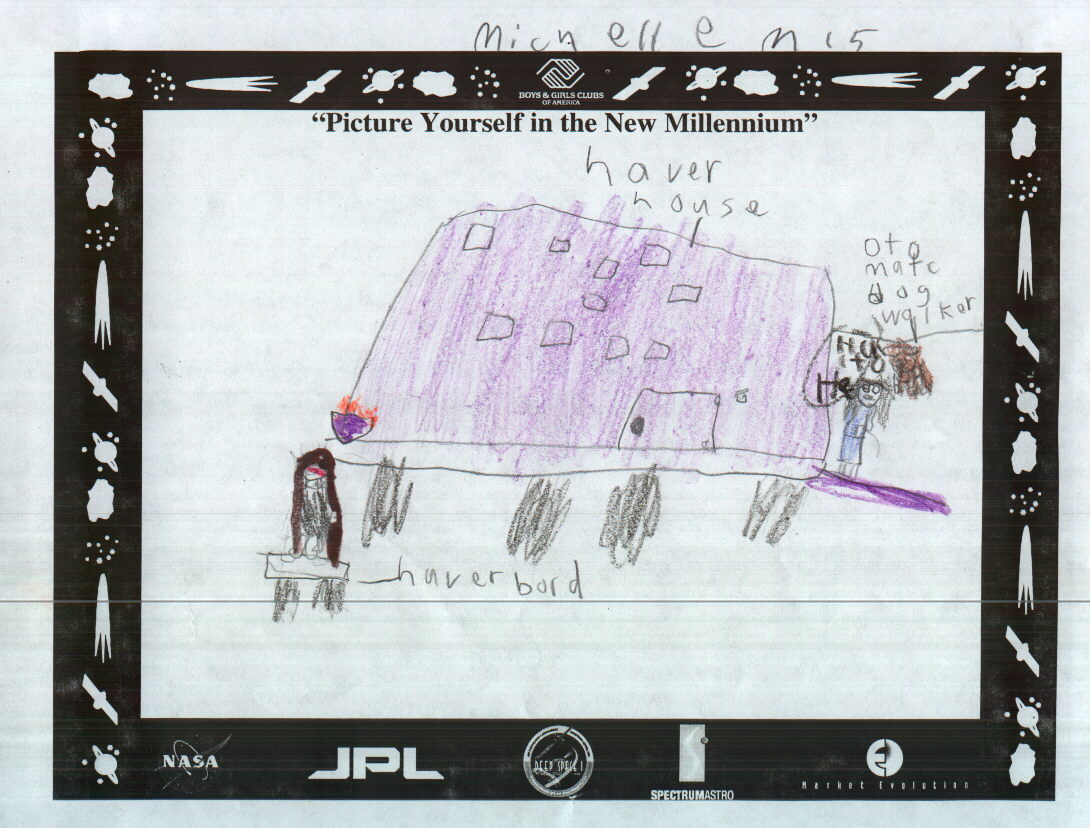 Michelle M 15
BOYS & GIRLS CLUBS
OF AMERICA
“Picture Yourself in the New Millennium”
haver
house
oto
matc
dog
walker
haverbord
NASA
JPL
DEEP SPACE 1
SPECTRUMASTRO
Market Evolution